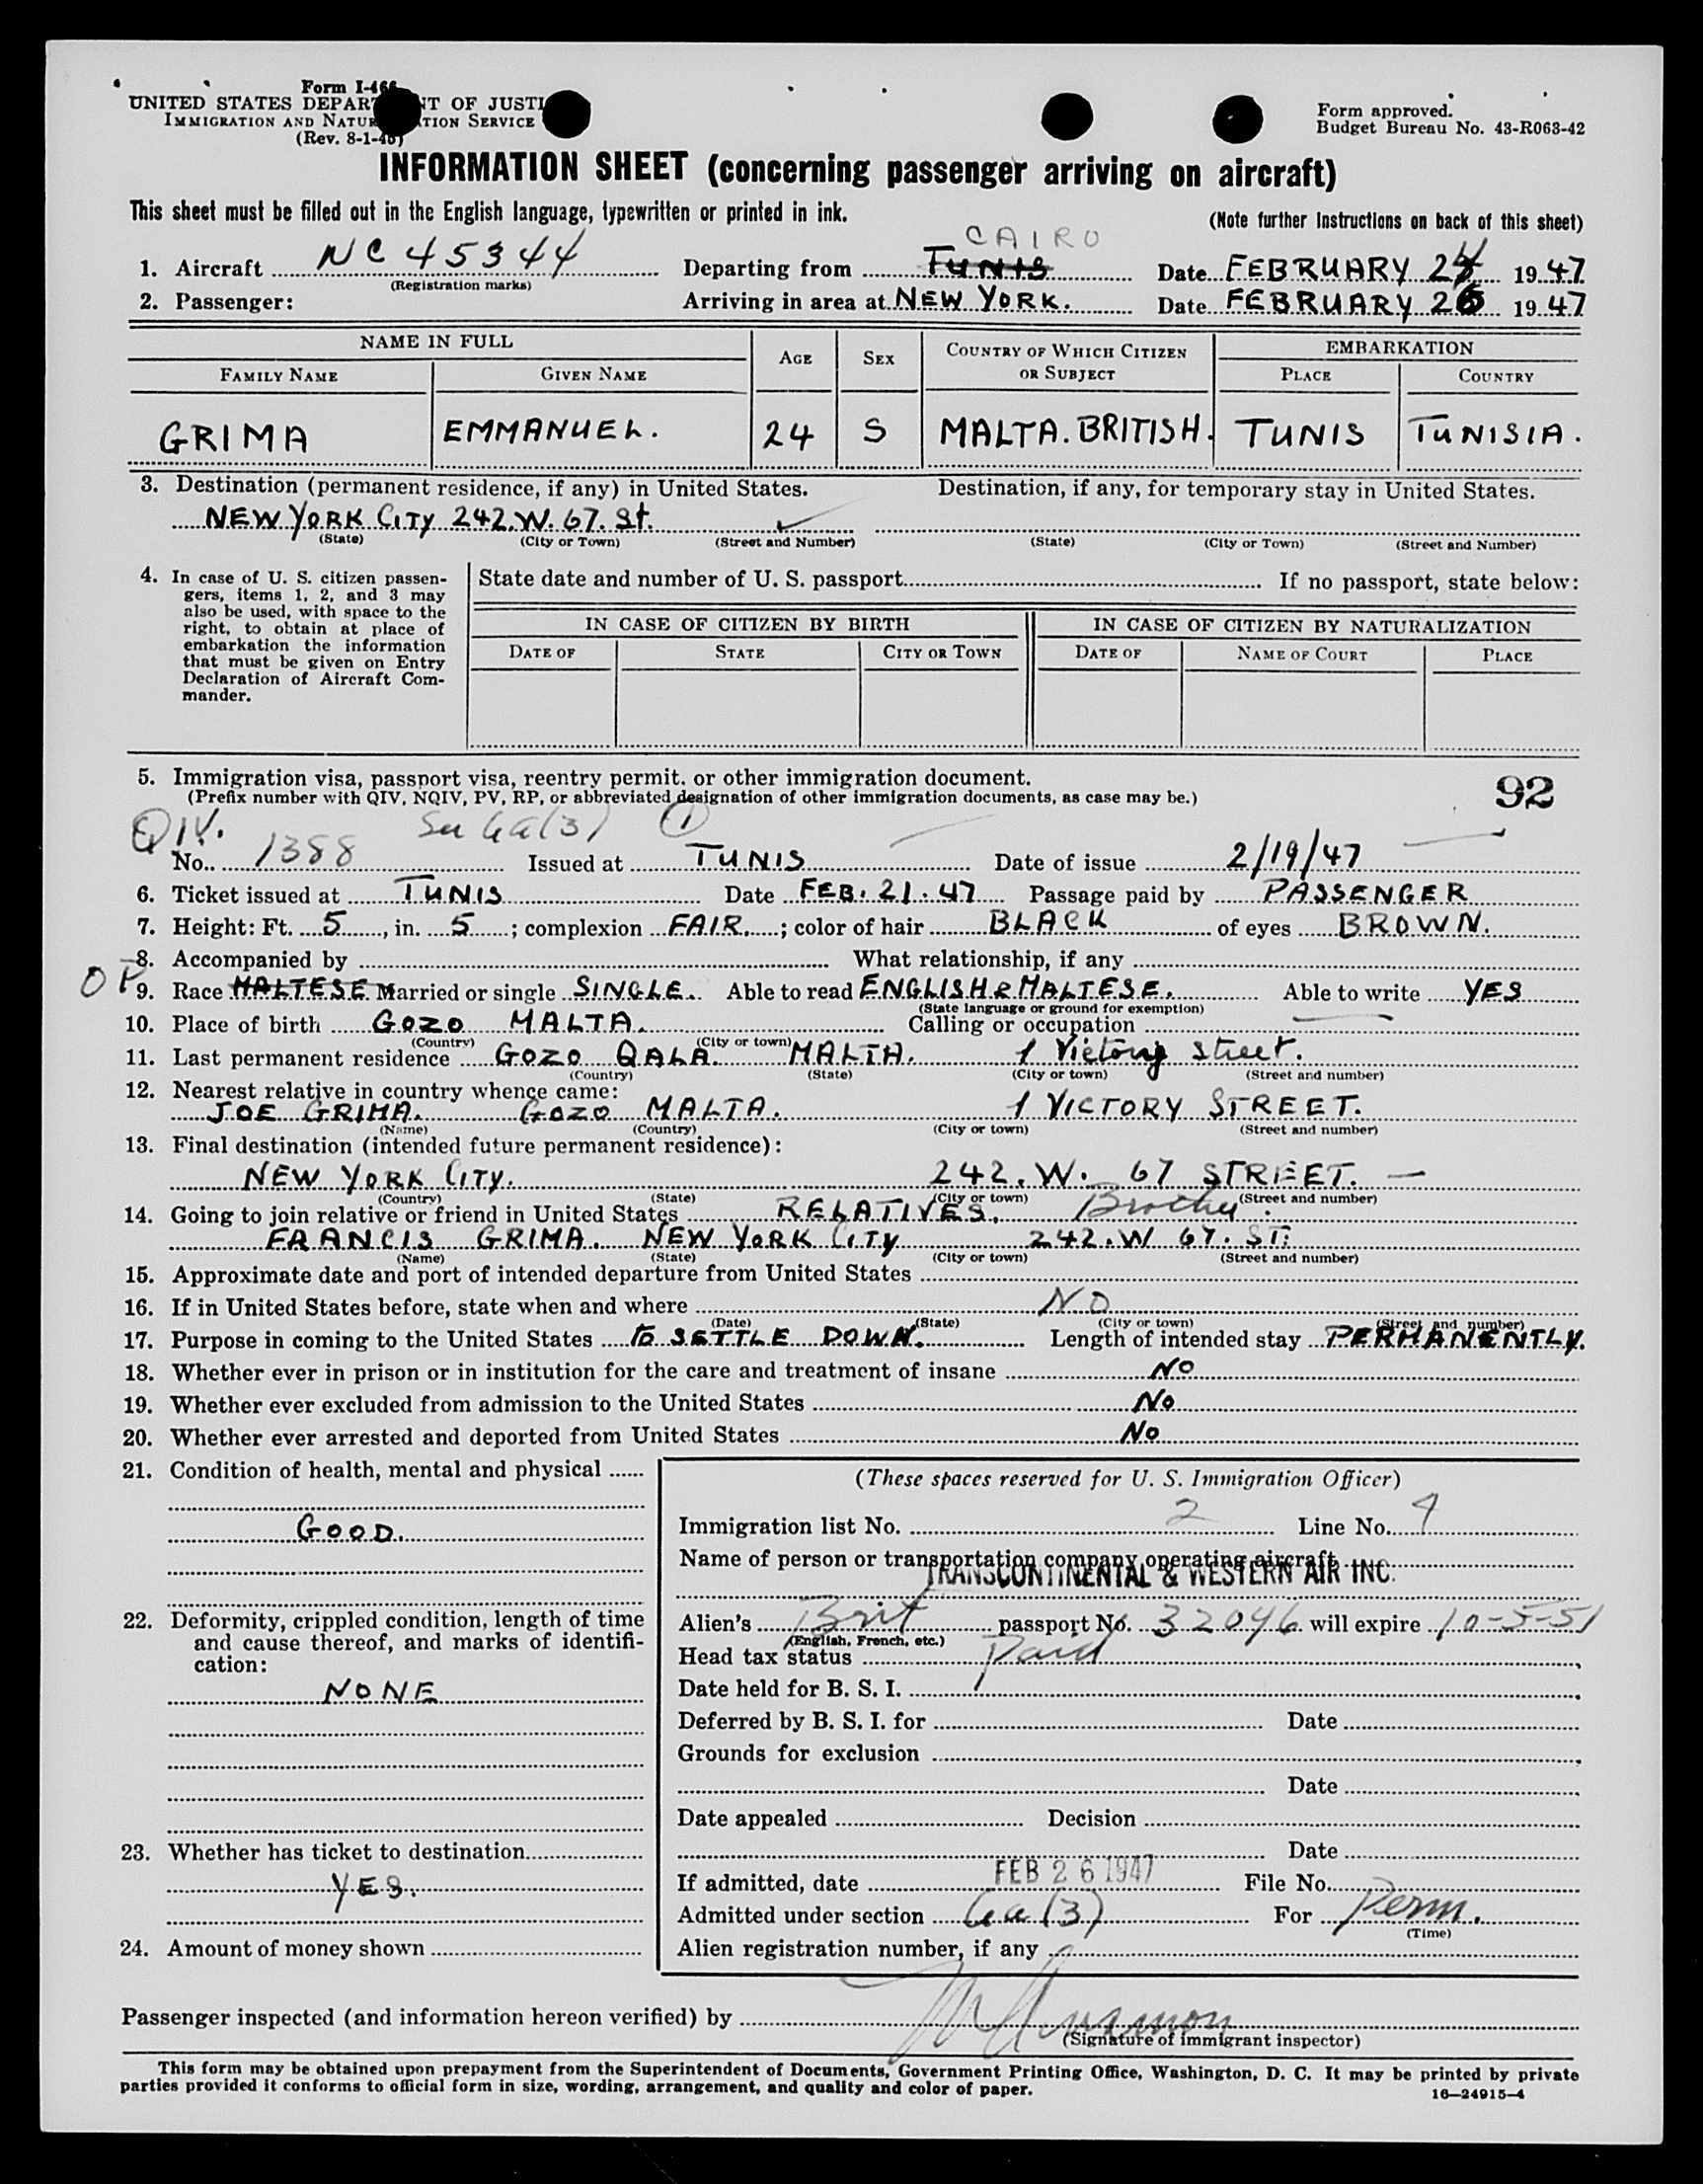 Form I-466
UNITED STATES DEPARTMENT OF JUSTICE
IMMIGRATION AND NATURALIZATION SERVICE
(Rev. 8-1-45)
Form approved.
Budget Bureau No. 43-R063-42
INFORMATION SHEET (concerning passenger arriving on aircraft)
This sheet must be filled out in the English language, typewritten or printed in ink.
(Note further Instructions on back of this sheet)
CAIRO
1. Aircraft NC 45344 Departing from TUNIS Date FEBRUARY 24 1947
(Registration marks)
2. Passenger: Arriving in area at NEW YORK. Date FEBRUARY 26 1947
NAME IN FULL AGE SEX COUNTRY OF WHICH CITIZEN OR SUBJECT EMBARKATION
FAMILY NAME GIVEN NAME PLACE COUNTRY
GRIMA EMMANUEL. 24 S MALTA. BRITISH. TUNIS TUNISIA.
3. Destination (permanent residence, if any) in United States. Destination, if any, for temporary stay in United States.
NEW YORK CITY 242. W. 67. St.
(State) (City or Town) (Street and Number) (State) (City or Town) (Street and Number)
4. In case of U. S. citizen passen-
gers, items 1, 2, and 3 may
also be used, with space to the
right, to obtain at place of
embarkation the information
that must be given on Entry
Declaration of Aircraft Com-
mander.
State date and number of U. S. passport If no passport, state below:
IN CASE OF CITIZEN BY BIRTH IN CASE OF CITIZEN BY NATURALIZATION
DATE OF STATE CITY OR TOWN DATE OF NAME OF COURT PLACE
5. Immigration visa, passport visa, reentry permit, or other immigration document.
(Prefix number with QIV, NQIV, PV, RP, or abbreviated designation of other immigration documents, as case may be.)
92
QIV. 6a(3) 1
No. 1388 Issued at TUNIS Date of issue 2/19/47
6. Ticket issued at TUNIS Date FEB. 21. 47 Passage paid by PASSENGER
7. Height: Ft. 5, in. 5; complexion FAIR.; color of hair BLACK of eyes BROWN.
8. Accompanied by What relationship, if any
OP
9. Race MALTESE. Married or single SINGLE. Able to read ENGLISH & MALTESE. Able to write YES
(State language or ground for exemption)
10. Place of birth GOZO MALTA. Calling or occupation
(Country) (City or town)
11. Last permanent residence GOZO QALA. MALTA. 1 Victory Street.
(Country) (State) (City or town) (Street and number)
12. Nearest relative in country whence came:
JOE GRIMA. GOZO MALTA. 1 VICTORY STREET.
(Name) (Country) (City or town) (Street and number)
13. Final destination (intended future permanent residence):
NEW YORK CITY. 242. W. 67 STREET.
(Country) (State) (City or town) (Street and number)
14. Going to join relative or friend in United States RELATIVES. Brother.
FRANCIS GRIMA. NEW YORK CITY 242. W 67. ST.
(Name) (State) (City or town) (Street and number)
15. Approximate date and port of intended departure from United States
16. If in United States before, state when and where NO
(Date) (State) (City or town) (Street and number)
17. Purpose in coming to the United States TO SETTLE DOWN. Length of intended stay PERMANENTLY.
18. Whether ever in prison or in institution for the care and treatment of insane NO
19. Whether ever excluded from admission to the United States No
20. Whether ever arrested and deported from United States No
21. Condition of health, mental and physical
GOOD.
22. Deformity, crippled condition, length of time
and cause thereof, and marks of identifi-
cation:
NONE
23. Whether has ticket to destination
YES.
24. Amount of money shown
(These spaces reserved for U. S. Immigration Officer)
Immigration list No. 2 Line No. 9
Name of person or transportation company operating aircraft
TRANSCONTINENTAL & WESTERN AIR INC.
Alien's Brit passport No. 32046 will expire 10-5-51
(English, French, etc.)
Head tax status Paid
Date held for B. S. I.
Deferred by B. S. I. for Date
Grounds for exclusion
Date
Date appealed Decision
Date
If admitted, date FEB 26 1947 File No.
Admitted under section 6a(3) For Perm.
(Time)
Alien registration number, if any
Passenger inspected (and information hereon verified) by
(Signature of immigrant inspector)
This form may be obtained upon prepayment from the Superintendent of Documents, Government Printing Office, Washington, D. C. It may be printed by private
parties provided it conforms to official form in size, wording, arrangement, and quality and color of paper.
16—24915-4